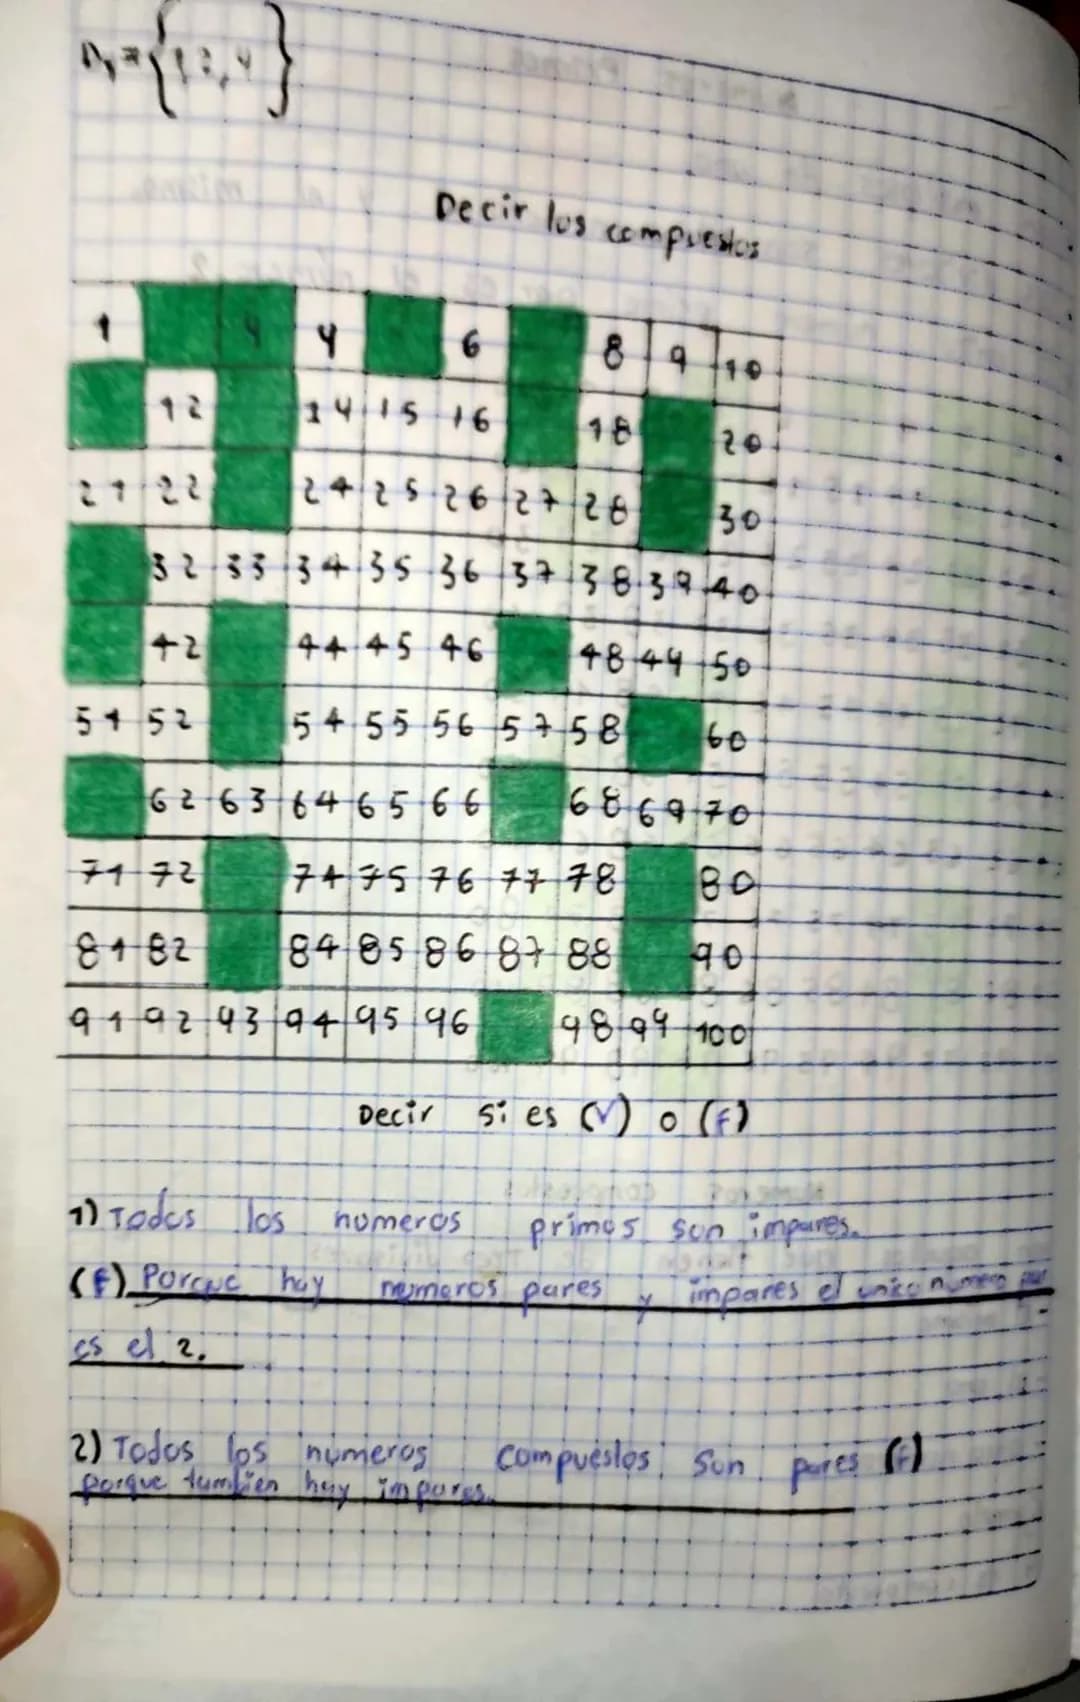 D₄ = {1 2, 4}
Decir los compuestos
1 4 4 6 8 9 10
12 14 15 16 18 20
21 22 24 25 26 27 28 30
32 33 34 35 36 37 38 39 40
42 44 45 46 48 49 50
51 52 54 55 56 57 58 60
62 63 64 65 66 68 69 70
71 72 74 75 76 77 78 80
81 82 84 85 86 87 88 90
91 92 93 94 95 96 98 99 100
Decir si es (V) o (F)
1) Todos los numeros primos son impares.
(F) Porque hay numeros pares y impares el unico numero par
es el 2.
2) Todos los numeros compuestos son pares (F)
porque tambien hay impares.